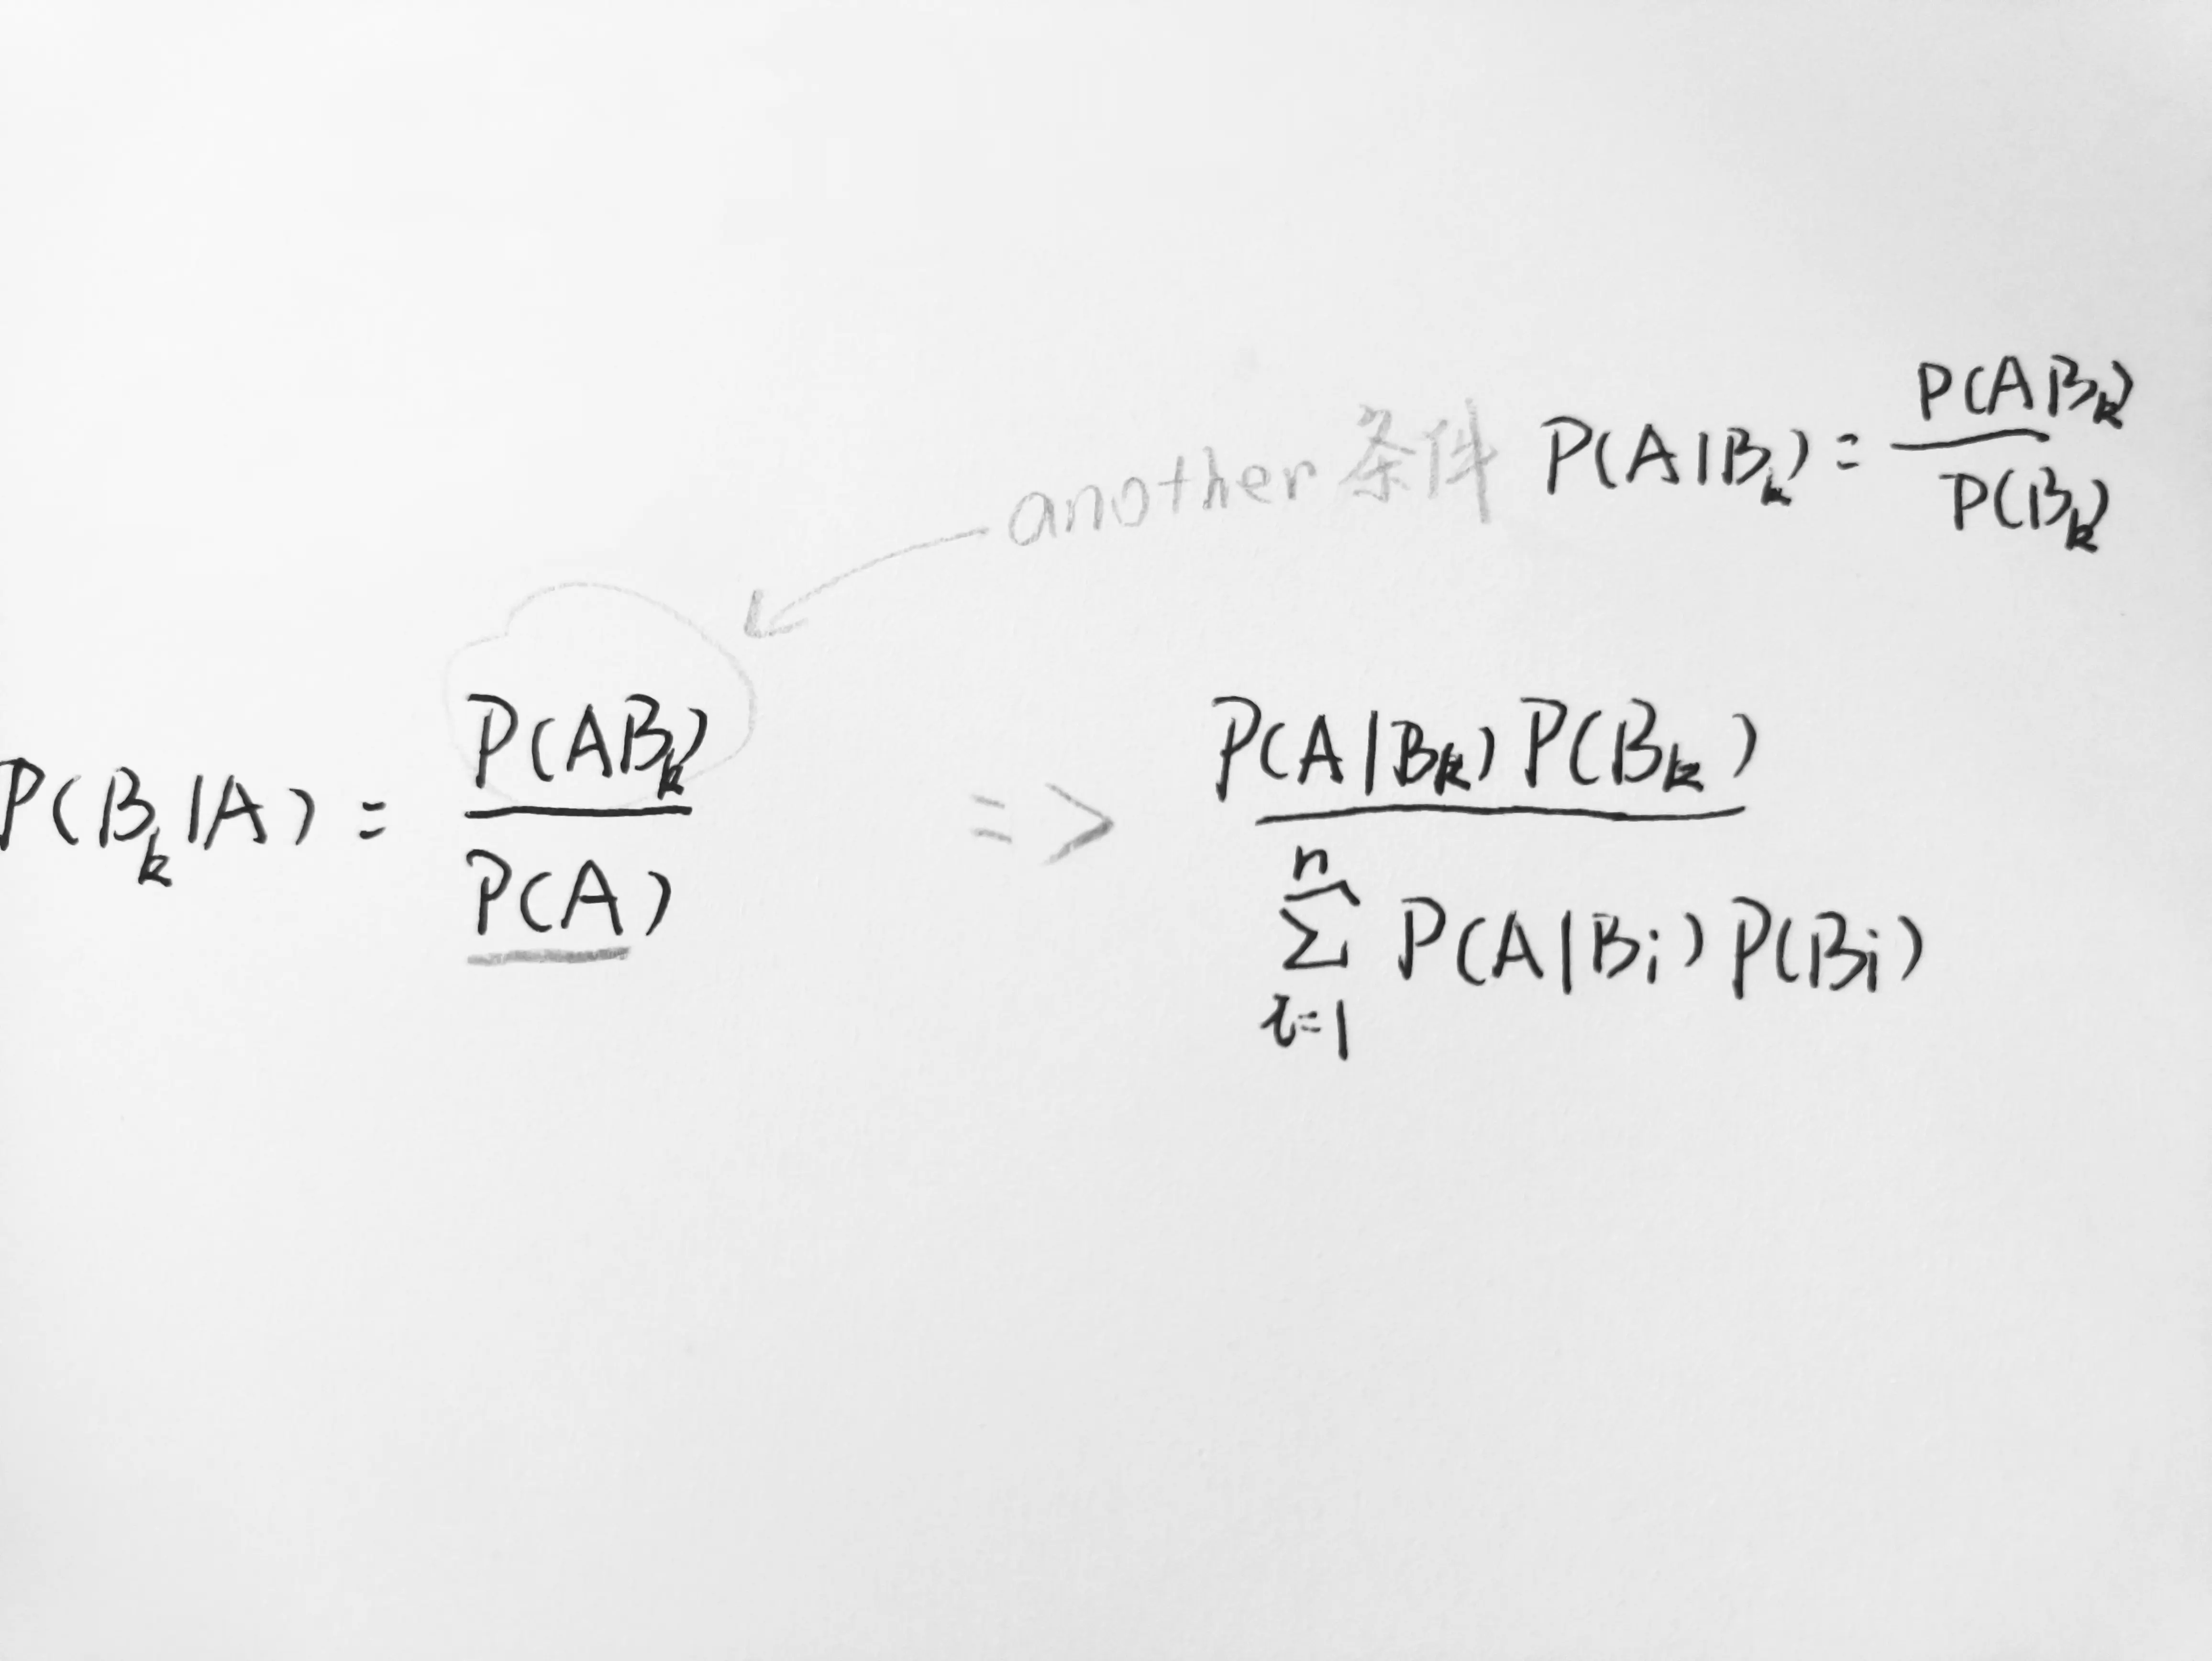 another 条件 P(A|B_k) = P(AB_k) / P(B_k)
P(B_k|A) = P(AB_k) / P(A) => P(A|B_k) P(B_k) / \sum_{i=1}^{n} P(A|B_i) P(B_i)